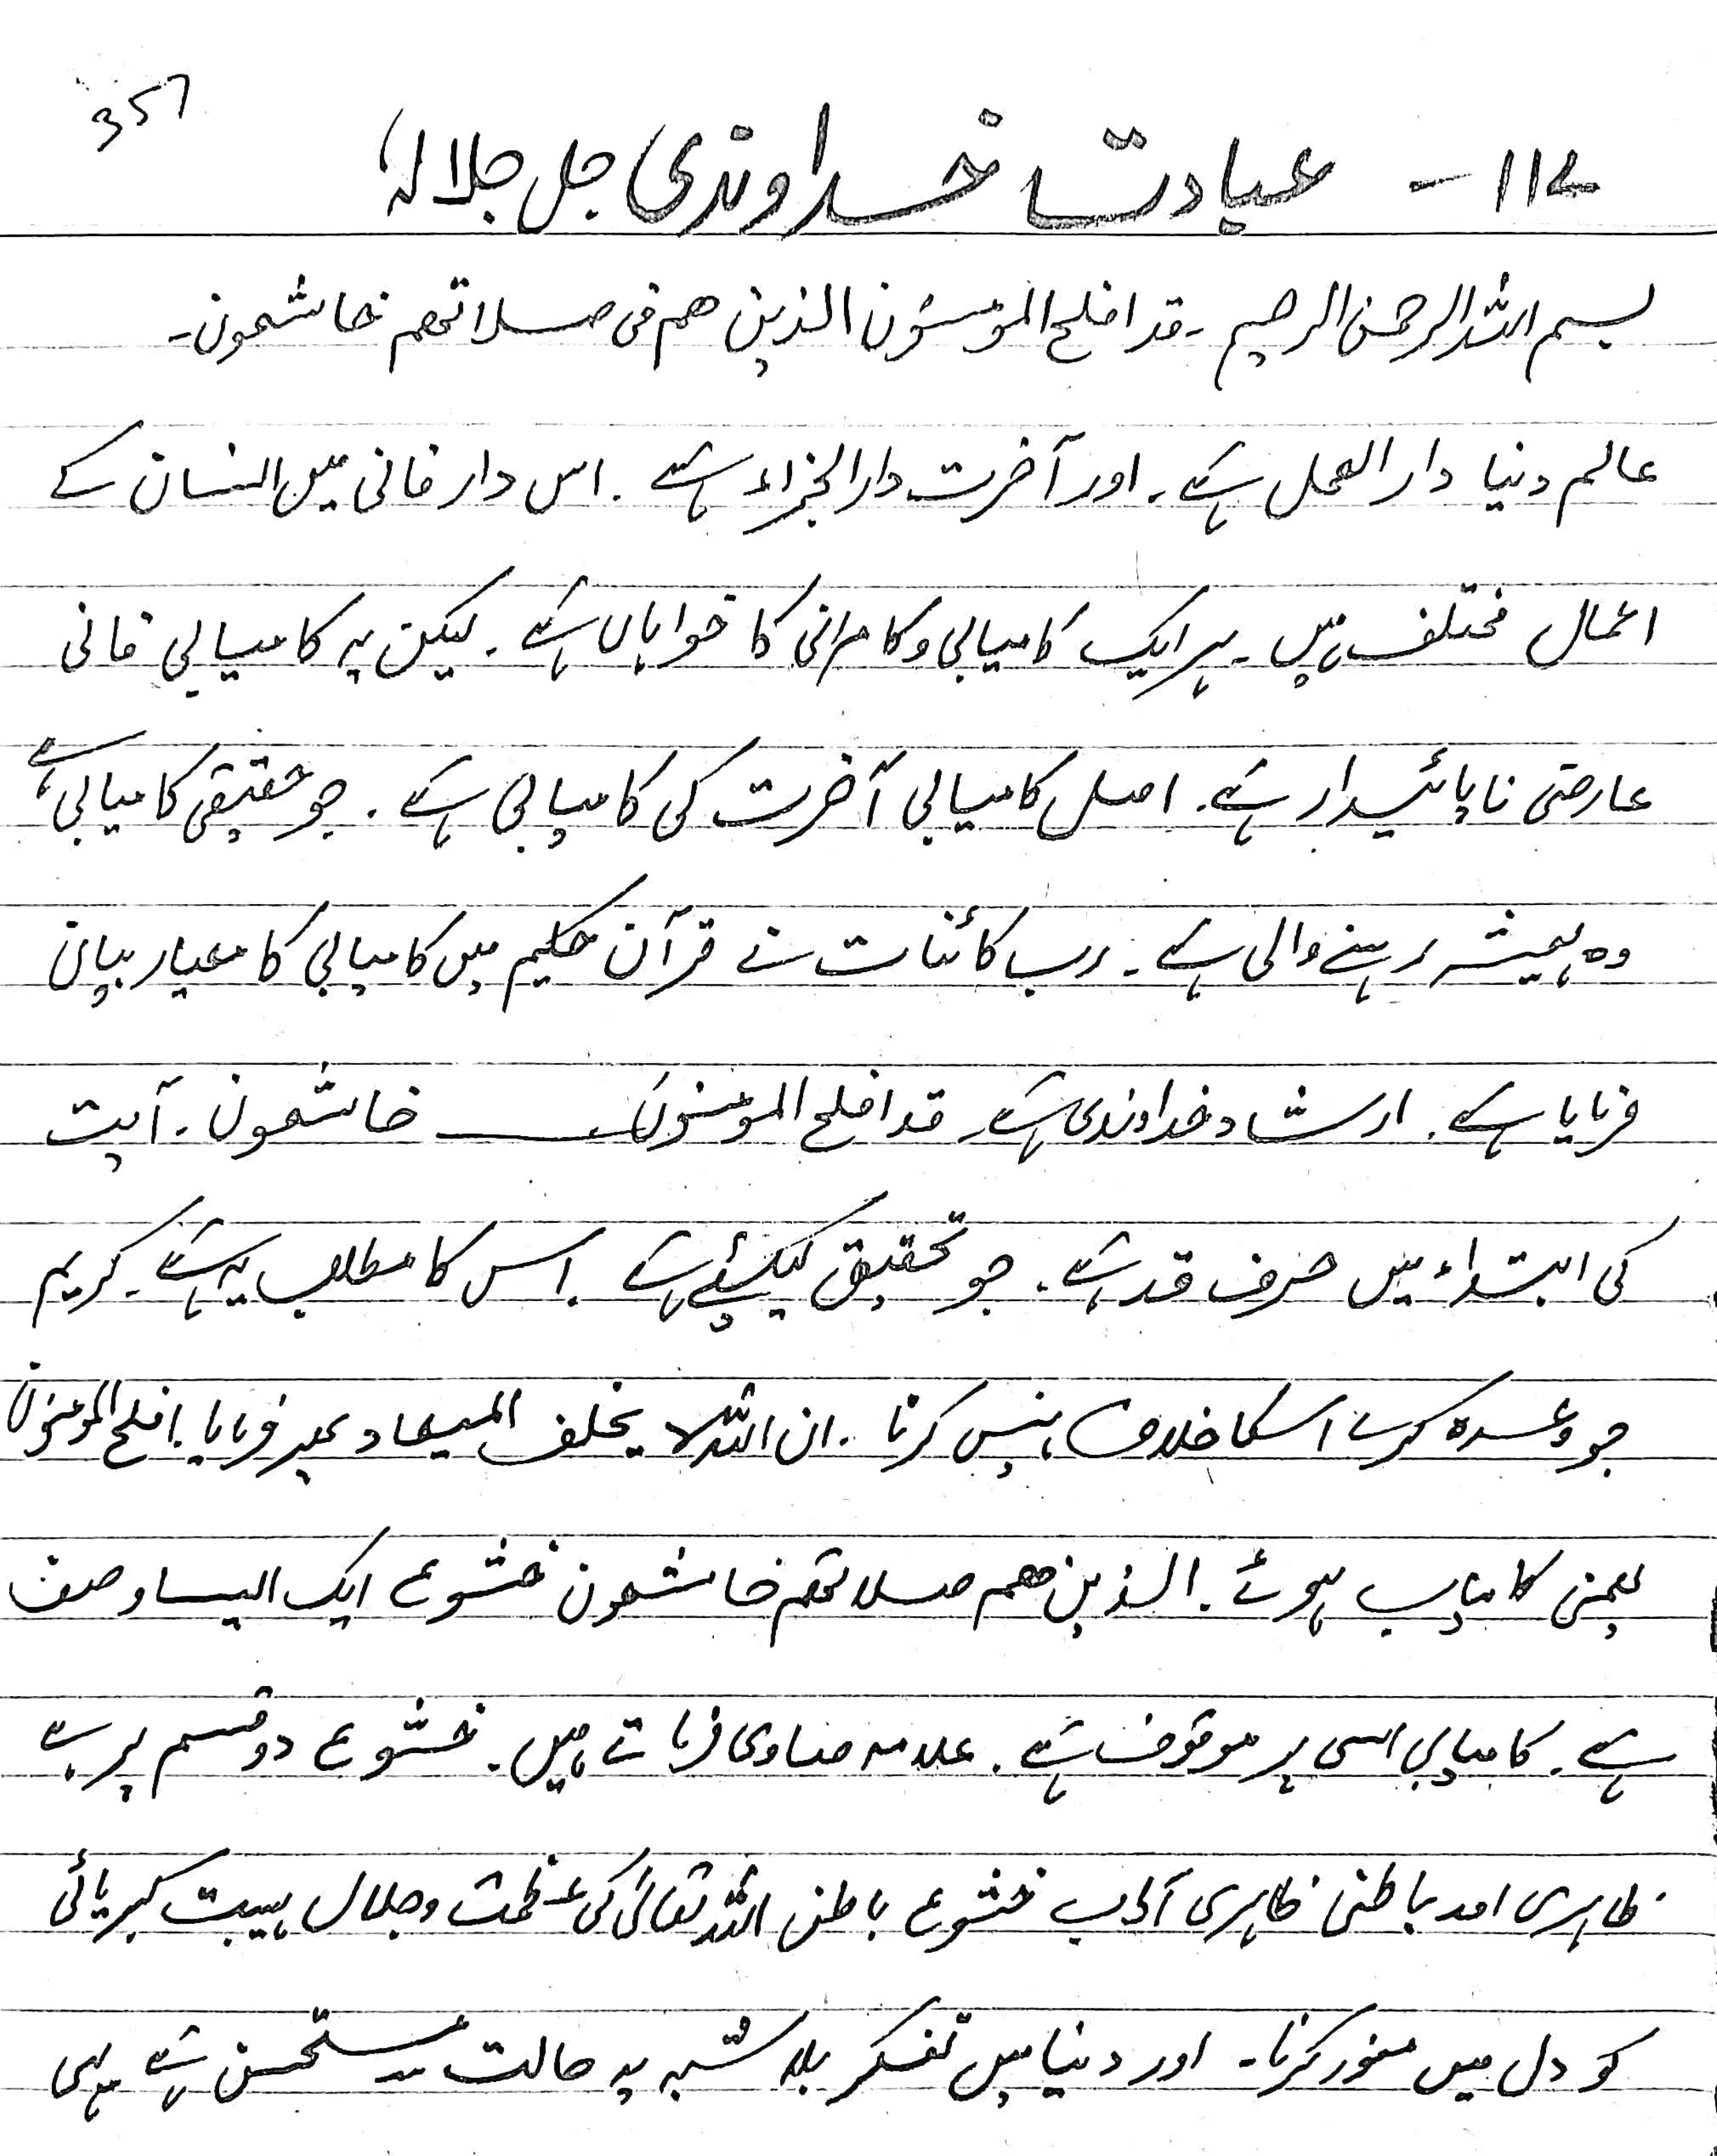 357
۱۱۷ - عبادت خداوندی جل جلالہ،
بسم اللہ الرحمن الرحیم - قد افلح المؤمنون الذین ھم فی صلاتھم خاشعون -
عالم دنیا دار العمل ہے۔ اور آخرت دار الجزاء ہے۔ اس دار فانی میں انسان کے
اعمال مختلف ہیں۔ ہر ایک کامیابی و کامرانی کا خواہاں ہے۔ لیکن یہ کامیابی فانی
عارضی ناپائیدار ہے۔ اصل کامیابی آخرت کی کامیابی ہے۔ جو حقیقی کامیابی ہے،
وہ ہمیشہ رہنے والی ہے۔ رب کائنات نے قرآن حکیم میں کامیابی کا معیار بیان
فرمایا ہے۔ ارشاد خداوندی ہے۔ قد افلح المومنون ـــــ خاشعون۔ آیت
کی ابتداء میں حرف قد ہے۔ جو تحقیق کیلئے ہے۔ اس کا مطلب یہ ہے۔ کریم
جو وعدہ کرے اسکا خلاف نہیں کرتا۔ ان اللہ لا یخلف المیعاد پھر فرمایا۔ افلح المومنون
یعنی کامیاب ہوئے۔ الذین ھم صلاتھم خاشعون خشوع ایک ایسا وصف
ہے۔ کامیابی اسی پر موقوف ہے۔ علامہ صاوی فرماتے ہیں۔ خشوع دو قسم پر ہے
ظاہری اور باطنی ظاہری آداب خشوع باطنی اللہ تعالیٰ کی عظمت و جلال ہیبت کبریائی
کو دل میں غور کرنا۔ اور دنیا میں تفکر بلا شبہ یہ حالت مستحسن ہے یہی